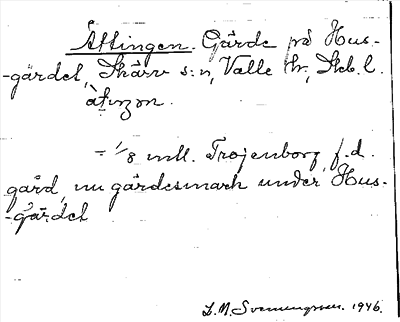 Åttingen. Gärde på Hus-
-gärdet, Skärv s:n, Valle hr, Skb. l.
àtɩŋən.
= 1/8 mtl. Trojenborg, f.d.
gård, nu gärdesmark under Hus-
-gärdet
L. M. Svenungsson. 1946.